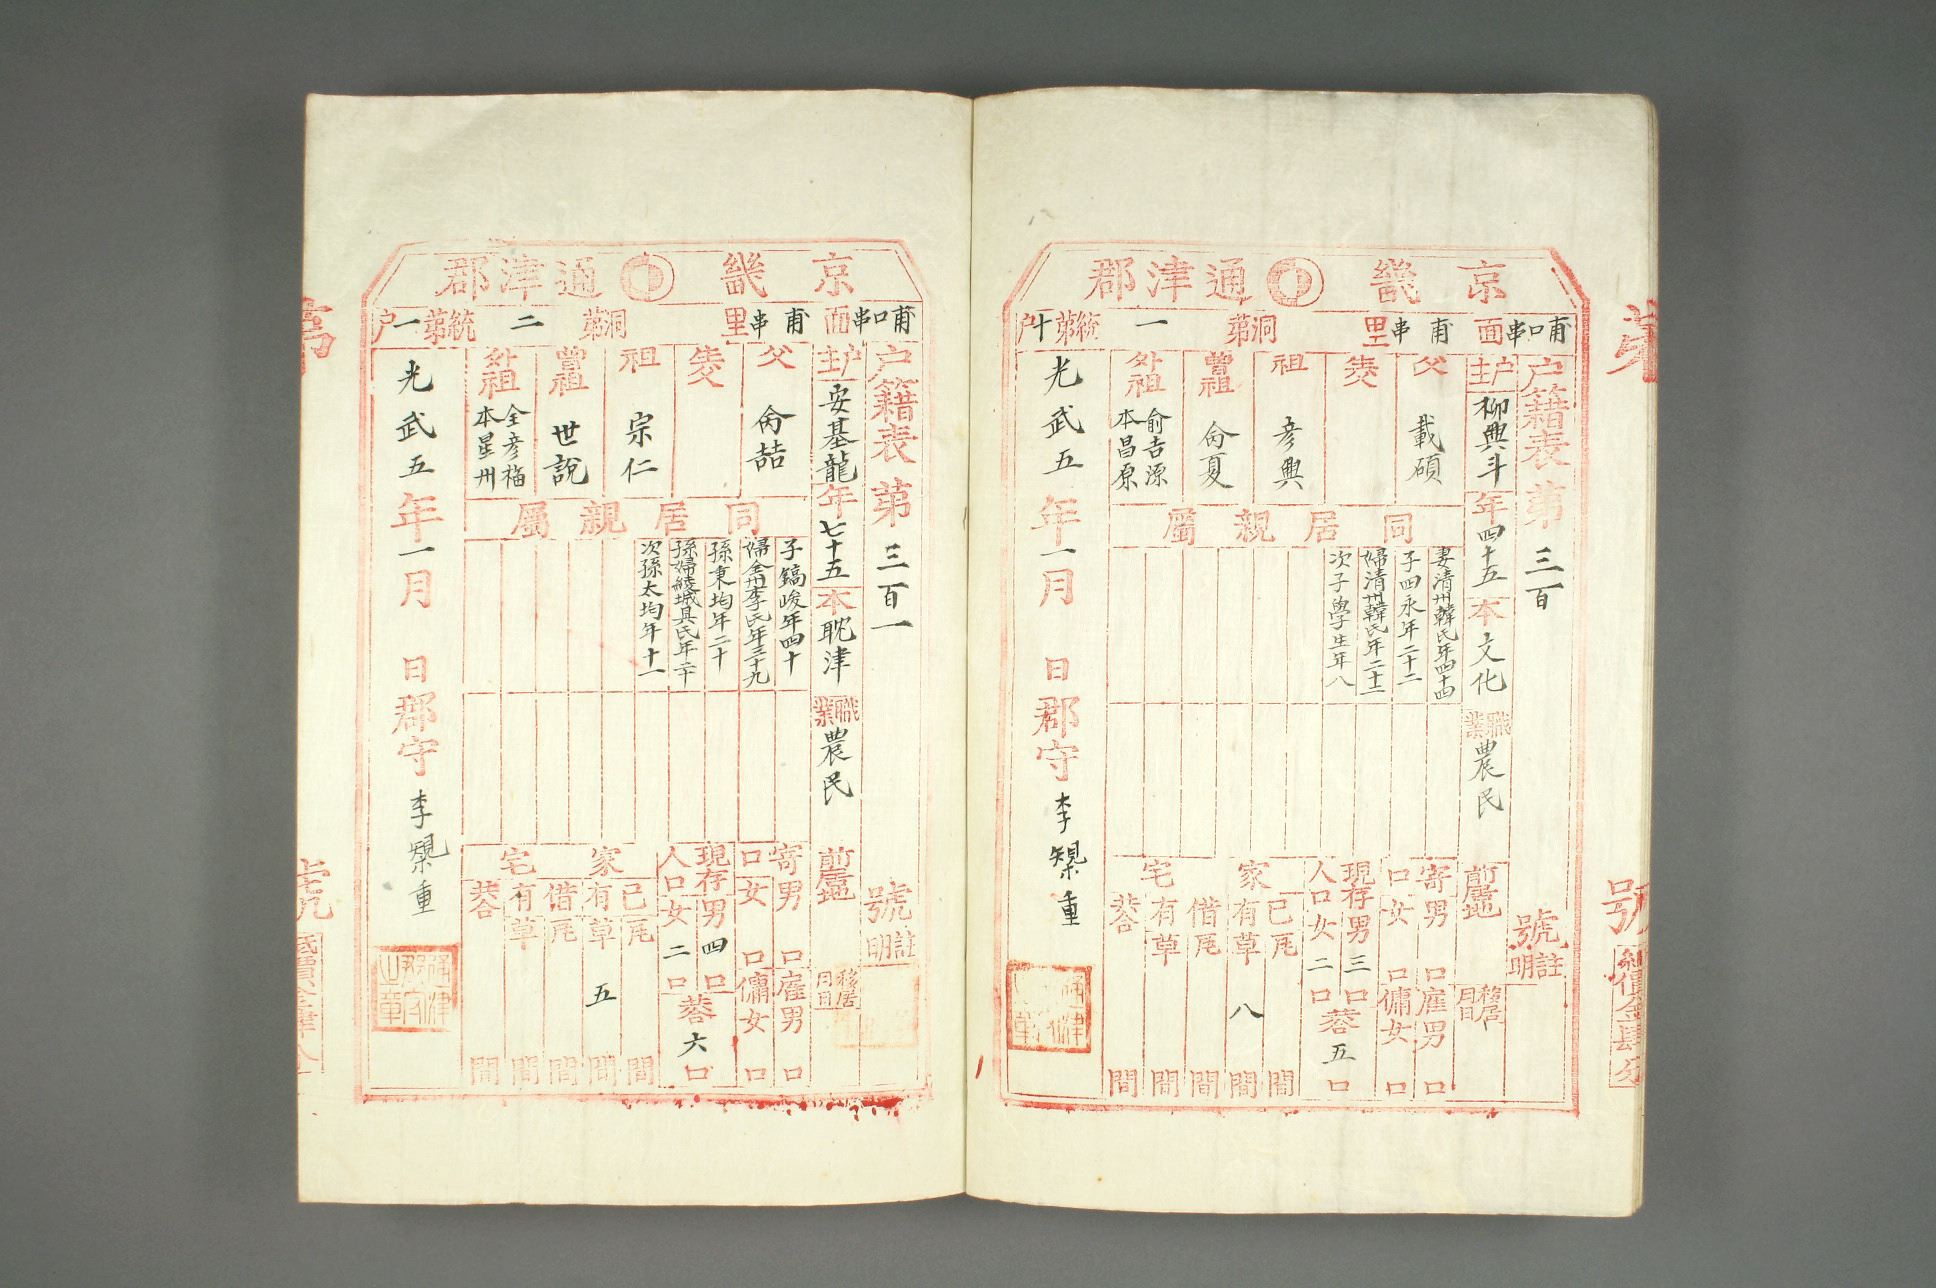 京畿 通津郡
甫口串面 甫串里 洞第一統第十户
户籍表第三百號
户主 柳興斗 年四十五 本文化 職業 農民 前居地 移居月日
註明
父 載碩
祖 彦興
曾祖 㑹夏
外祖 俞吉源 本昌原
同居親屬
妻清州韓氏年四十四
子四永年二十二
婦清州韓氏年二十二
次子學生年八
寄口 男口 女口
雇男口 傭女口
現存人口 男三口 女二口 共五口
家宅 已有 瓦間 草八間
借有 瓦間 草間
共間
光武五年一月 日 郡守 李槼重
京畿 通津郡
甫口串面 甫串里 洞第二統第一户
户籍表第三百一號
户主 安基龍 年七十五 本耽津 職業 農民 前居地 移居月日
註明
父 㑹喆
祖 宗仁
曾祖 世說
外祖 全彦福 本星州
同居親屬
子鎬峻年四十
婦全州李氏年三十九
孫東均年二十
孫婦綾城具氏年二十
次孫太均年十一
寄口 男口 女口
雇男口 傭女口
現存人口 男四口 女二口 共六口
家宅 已有 瓦間 草五間
借有 瓦間 草間
共間
光武五年一月 日 郡守 李槼重